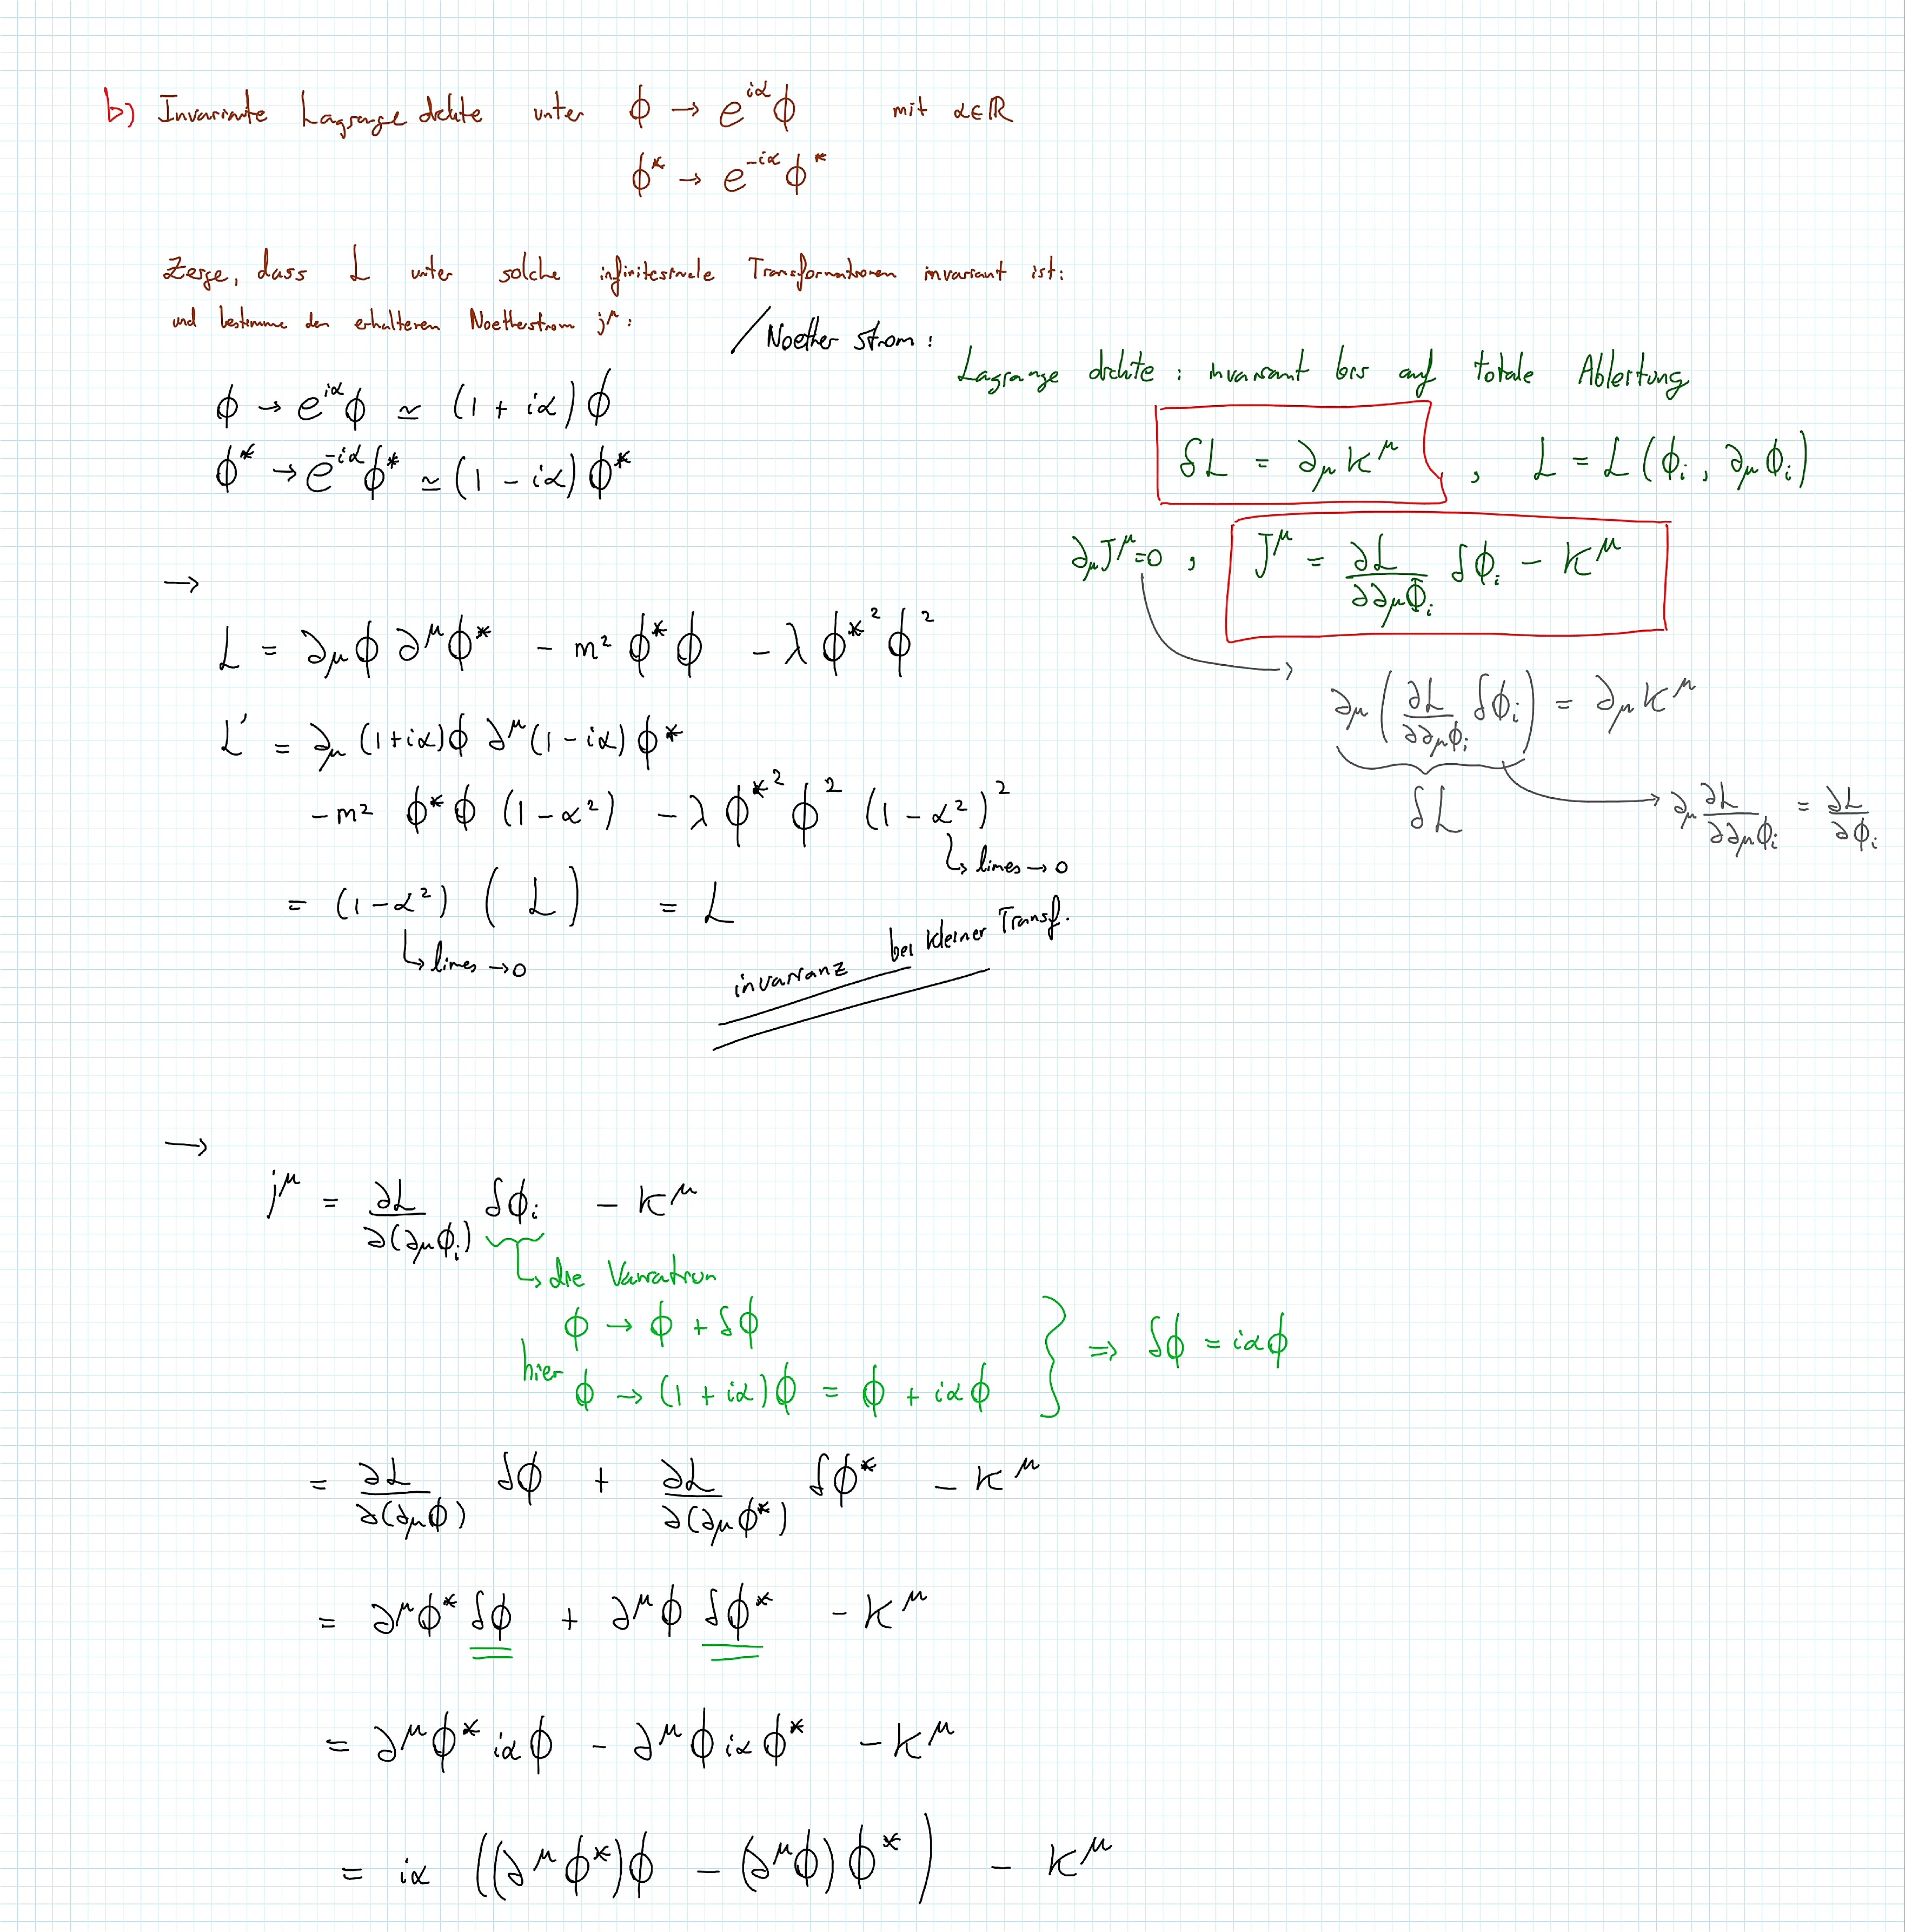 b) Invariante Lagrangedichte unter ϕ → e^{iα}ϕ mit α∈ℝ
ϕ* → e^{-iα}ϕ*
Zeige, dass L unter solche infinitesimale Transformationen invariant ist:
und bestimme den erhaltenen Noetherstrom j^μ:
/Noether strom:
Lagrange dichte: invariant bis auf totale Ableitung
ϕ → e^{iα}ϕ ≃ (1 + iα)ϕ
ϕ* → e^{-iα}ϕ* ≃ (1 - iα)ϕ*
δL = ∂_μ K^μ , L = L(ϕ_i, ∂_μϕ_i)
∂_μJ^μ=0 , J^μ = ∂L/∂∂_μΦ_i δϕ_i - K^μ
→
L = ∂_μϕ ∂^μϕ* - m² ϕ*ϕ - λ ϕ*²ϕ²
∂_μ(∂L/∂∂_μϕ_i δϕ_i) = ∂_μK^μ
δL
→ ∂_μ ∂L/∂∂_μϕ_i = ∂L/∂ϕ_i
L' = ∂_μ(1+iα)ϕ ∂^μ(1-iα)ϕ*
-m² ϕ*ϕ (1-α²) - λ ϕ*²ϕ² (1-α²)²
↳ limes → 0
= (1-α²) (L) = L
↳ limes → 0
invarianz bei kleiner Transf.
→
j^μ = ∂L/∂(∂_μϕ_i) δϕ_i - K^μ
↳ die Variation
ϕ → ϕ + δϕ
hier ϕ → (1 + iα)ϕ = ϕ + iαϕ } ⇒ δϕ = iαϕ
= ∂L/∂(∂_μϕ) δϕ + ∂L/∂(∂_μϕ*) δϕ* - K^μ
= ∂^μϕ* δϕ + ∂^μϕ δϕ* - K^μ
= ∂^μϕ* iαϕ - ∂^μϕ iαϕ* - K^μ
= iα ((∂^μϕ*)ϕ - (∂^μϕ)ϕ*) - K^μ